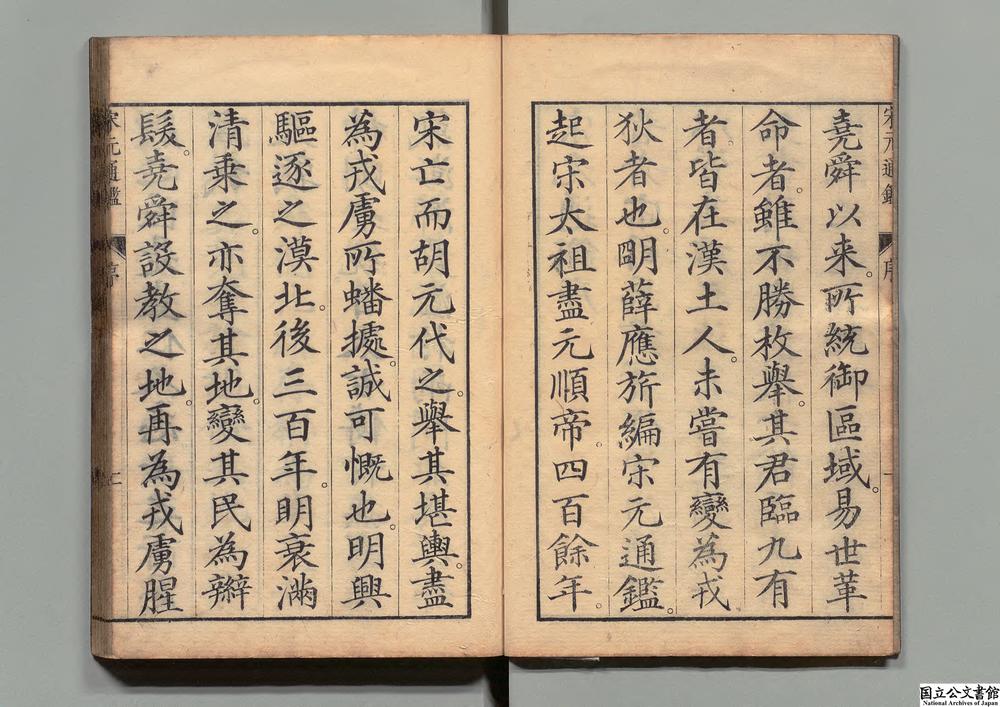 宋元通鑑 序 一
堯舜以来。所統御區域。易世革
命者。雖不勝枚擧。其君臨九有
者。皆在漢土人。未嘗有變為戎
狄者也。明薛應旂編宋元通鑑。
起宋太祖盡元順帝。四百餘年。
宋亡而胡元代之。擧其堪輿。盡
為戎虜所蟠據。誠可慨也。明興
驅逐之漠北。後三百年。明衰滿
清乗之。亦奪其地。變其民為辮
髮。堯舜設教之地。再為戎虜腥
宋元通鑑 序
国立公文書館
National Archives of Japan